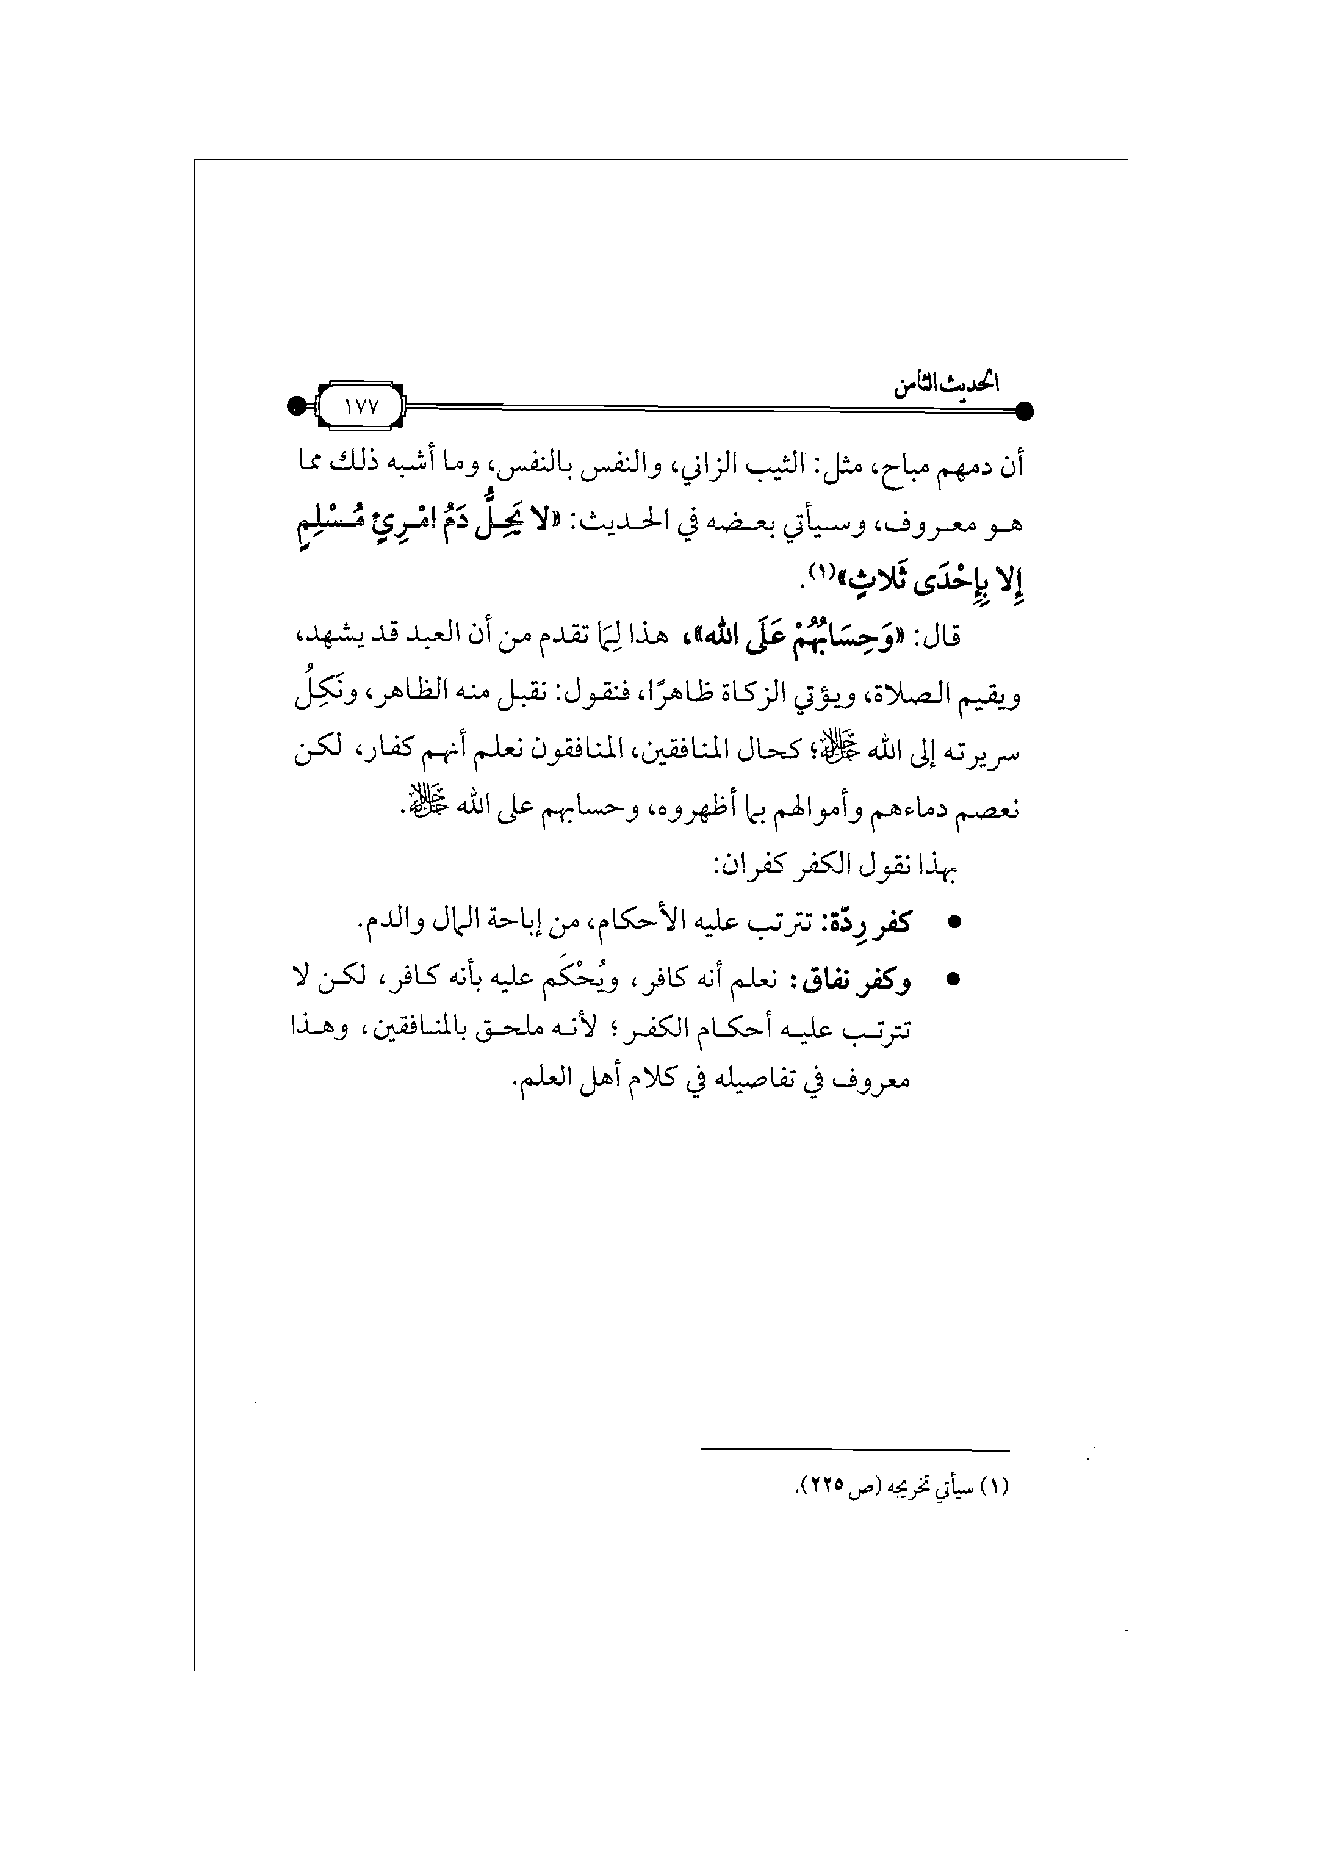 الحديث الثامن
١٧٧
أن دمهم مباح، مثل: الثيب الزاني، والنفس بالنفس، وما أشبه ذلك مما
هو معروف، وسيأتي بعضه في الحديث: «لا يَحِلُّ دَمُ امْرِئٍ مُسْلِمٍ
إِلا بِإِحْدَى ثَلاثٍ»(١).
قال: «وَحِسَابُهُمْ عَلَى الله»، هذا لِمَا تقدم من أن العبد قد يشهد،
ويقيم الصلاة، ويؤتي الزكاة ظاهرًا، فنقول: نقبل منه الظاهر، ونَكِلُ
سريرته إلى الله ﷻ؛ كحال المنافقين، المنافقون نعلم أنهم كفار، لكن
نعصم دماءهم وأموالهم بما أظهروه، وحسابهم على الله ﷻ.
بهذا نقول الكفر كفران:
• كفر رِدّة: تترتب عليه الأحكام، من إباحة المال والدم.
• وكفر نفاق: نعلم أنه كافر، ويُحْكَم عليه بأنه كافر، لكن لا
تترتب عليه أحكام الكفر؛ لأنه ملحق بالمنافقين، وهذا
معروف في تفاصيله في كلام أهل العلم.
(١) سيأتي تخريجه (ص ٢٢٥).